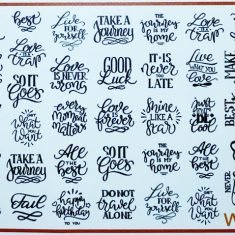 best
Live
FOR
yourself
TAKE A
Journey
The
journey
IS MY
home
Love
is a
TRAP
LIVE
Love
SO IT
Goes
Love
IS NEVER
WRONG
GOOD
Luck
IT IS
never
TOO
LATE
MAKE
what
You
want
every
moment
matters
Shine
LIKE A
Star
JUST
BE
COOL
BEST
TAKE A
Journey
SO IT
Goes
All
THE
Best
The
journey
IS MY
home
Love
is a
TRAP
NEVER
Fail
happy
birthday
TO YOU
DO NOT
TRAVEL
ALONE
Live
FOR
yourself
what
You
want